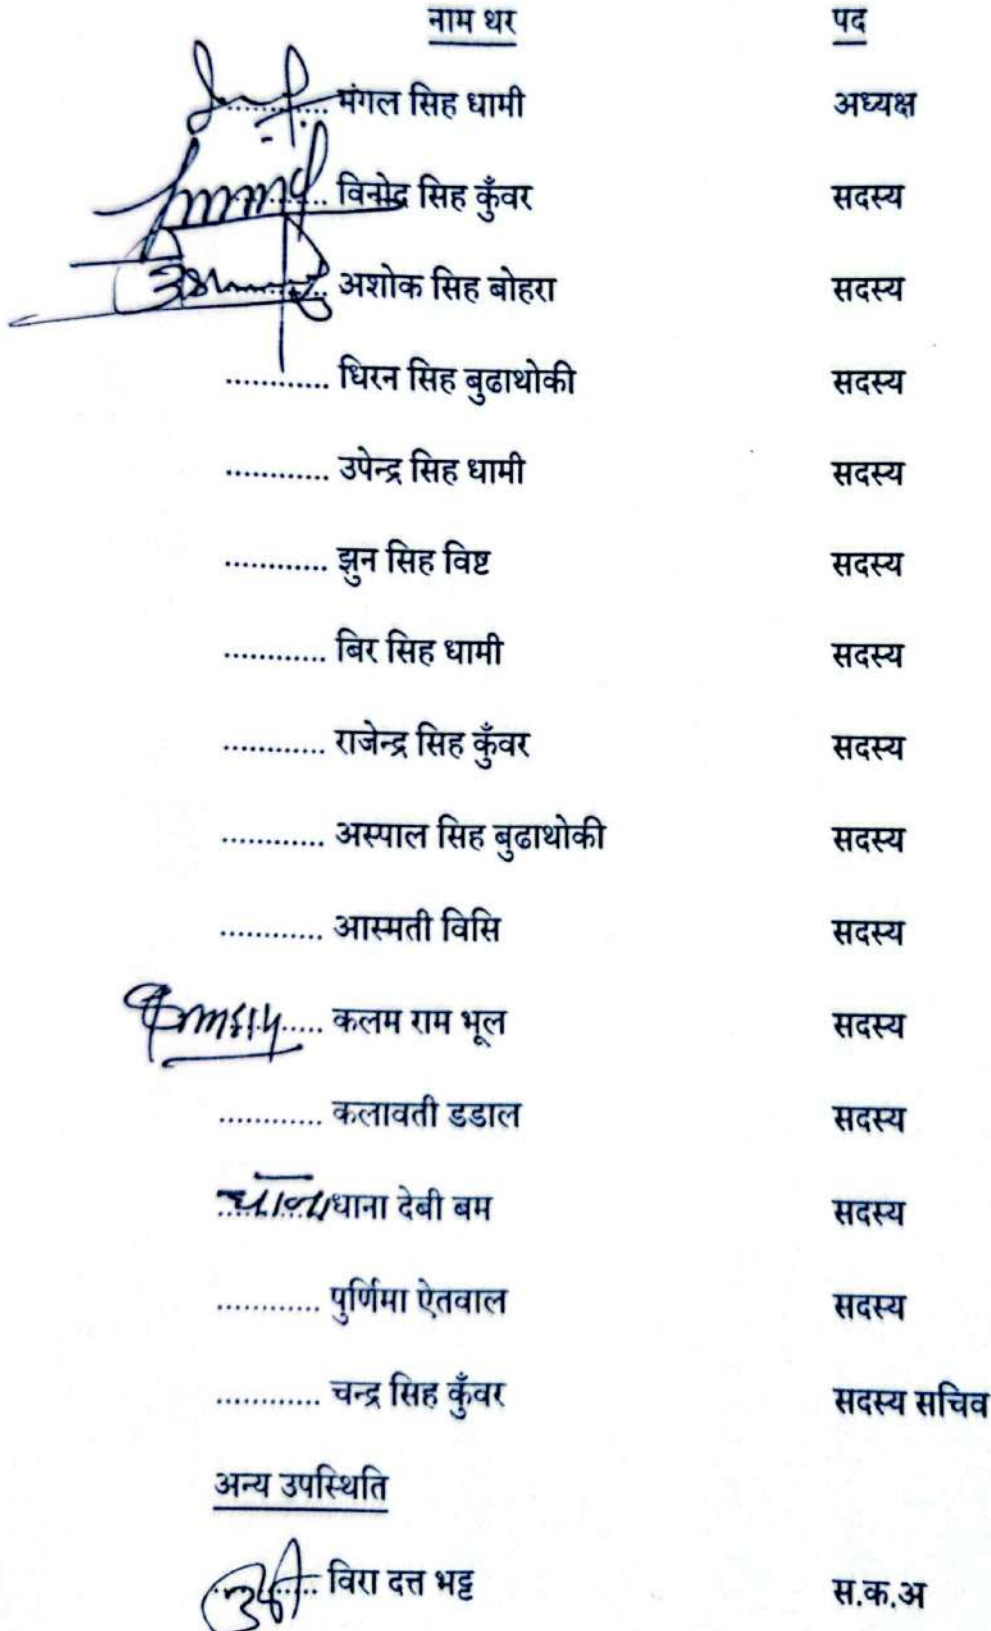 नाम थर पद
............ मंगल सिह धामी अध्यक्ष
............ विनोद सिह कुँवर सदस्य
............ अशोक सिह बोहरा सदस्य
............ धिरन सिह बुढाथोकी सदस्य
............ उपेन्द्र सिह धामी सदस्य
............ झुन सिह विष्ट सदस्य
............ बिर सिह धामी सदस्य
............ राजेन्द्र सिह कुँवर सदस्य
............ अस्पाल सिह बुढाथोकी सदस्य
............ आस्मती विसि सदस्य
............ कलम राम भूल सदस्य
............ कलावती डडाल सदस्य
............ धाना देबी बम सदस्य
............ पुर्णिमा ऐतवाल सदस्य
............ चन्द्र सिह कुँवर सदस्य सचिव
अन्य उपस्थिति
............ विरा दत्त भट्ट स.क.अ